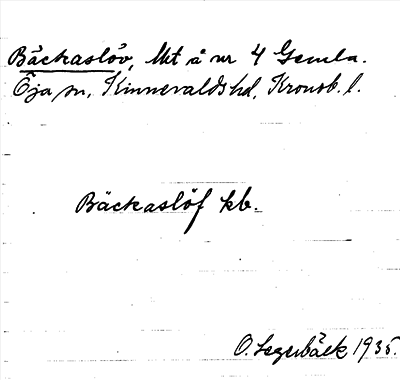 Bäckaslöv, Utt å nr 4 Gemla.
Öja sn, Kinnevalds hd, Kronob. l.
Bäckaslöf kb.
O. Segerbäck 1935.